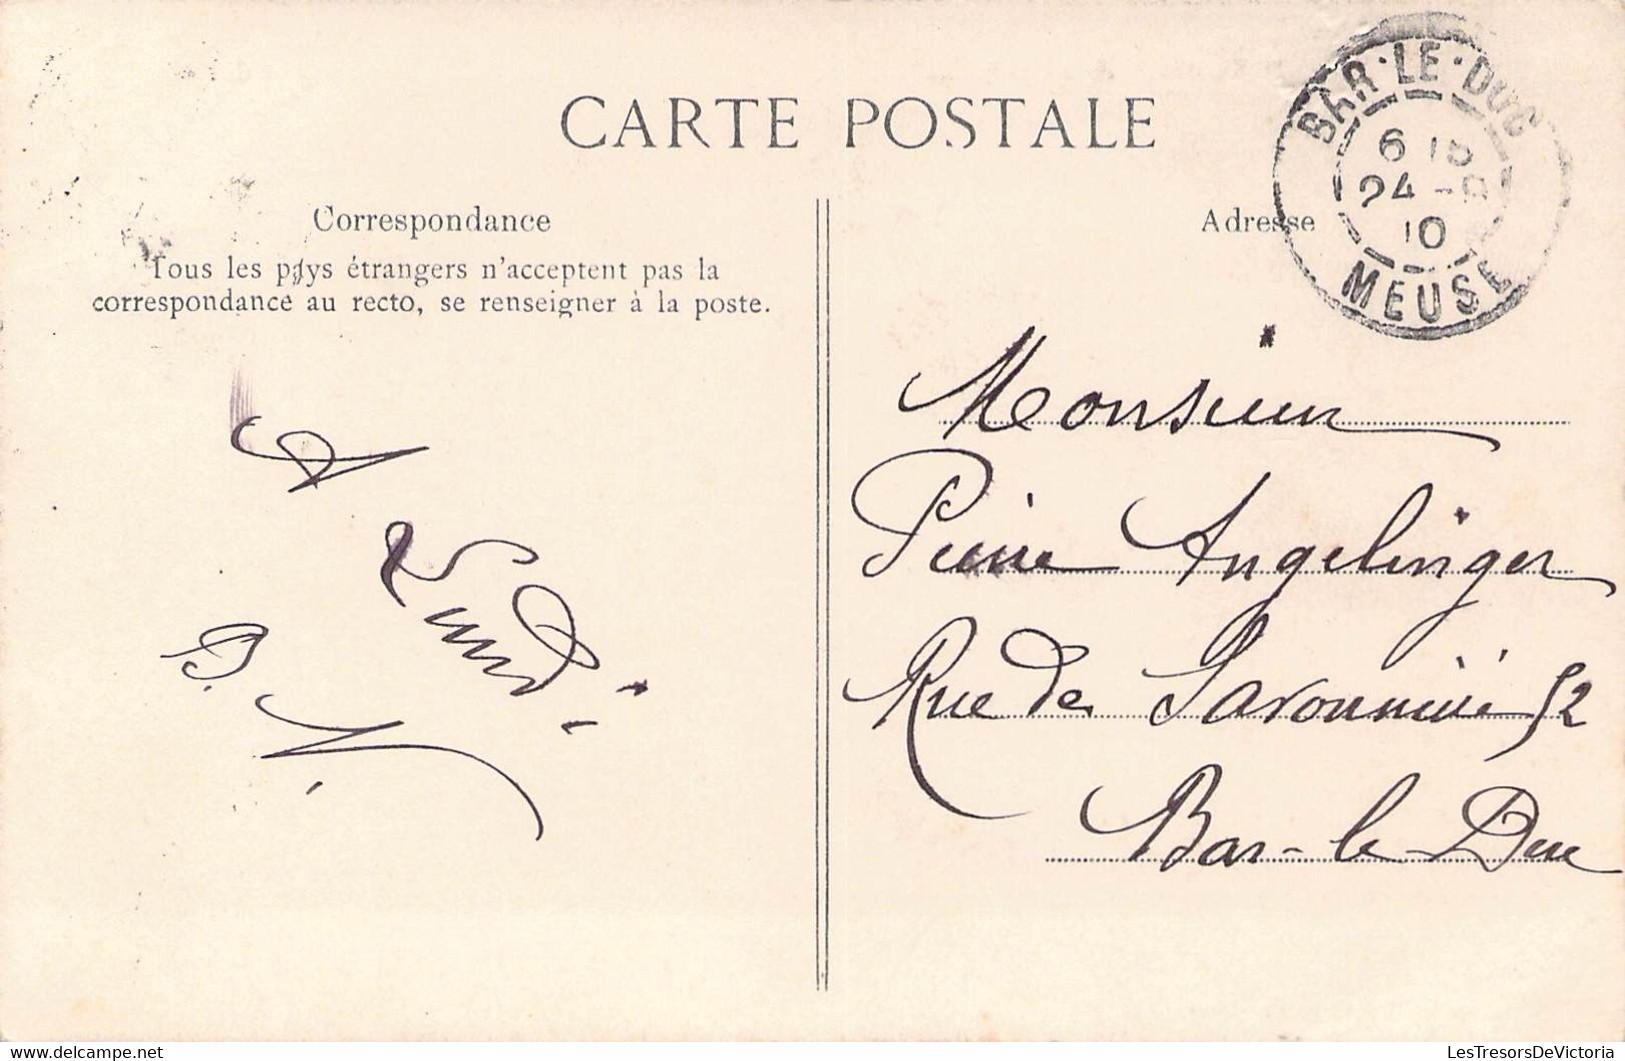 CARTE POSTALE
Correspondance
Tous les pays étrangers n'acceptent pas la
correspondance au recto, se renseigner à la poste.
A Lundi
B. N.
Adresse
BAR-LE-DUC
6 15
24 -
10
MEUSE
Monsieur
Pierre Angelinger
Rue de 52
Bar-le-Duc
LesTresorsDeVictoria